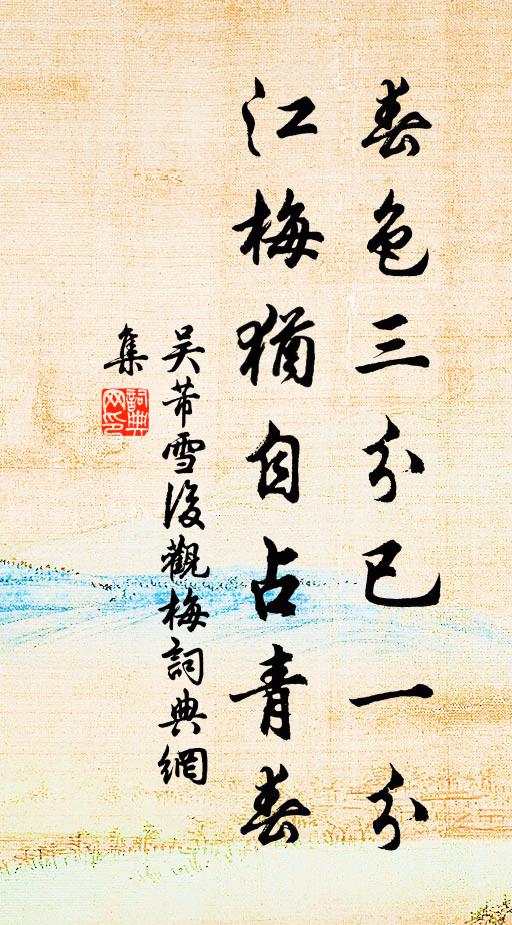 春色三分已一分
江梅猶自占青春
吴芾雪後觀梅詞典網
集
詞典
网印